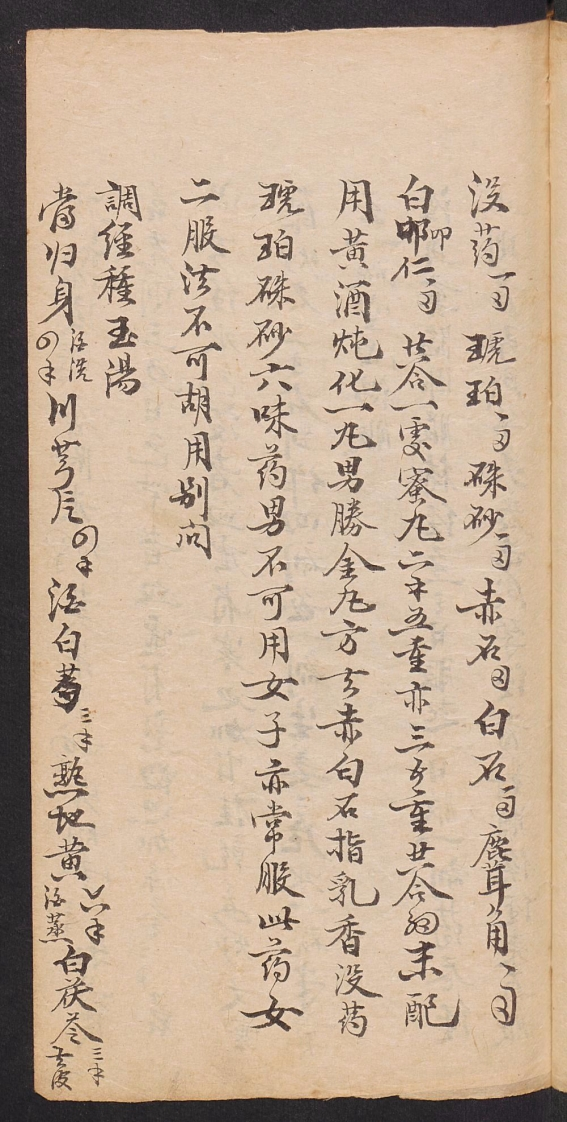 没药一匁 琥珀一匁 硃砂一匁 赤石匁 白石匁 鹿茸角一匁
白𨛗仁一匁 共合一處蜜丸二錢五重亦三錢重共合為末配
用黄酒炖化一丸男勝金丸方去赤白石指乳香没药
琥珀硃砂六味药男不可用女子亦常服此药女
二服法不可胡用别向
調經種玉湯
當归身酒洗四錢川芎片四錢酒白芍三錢熟地黄六錢酒蒸白茯苓三錢去皮